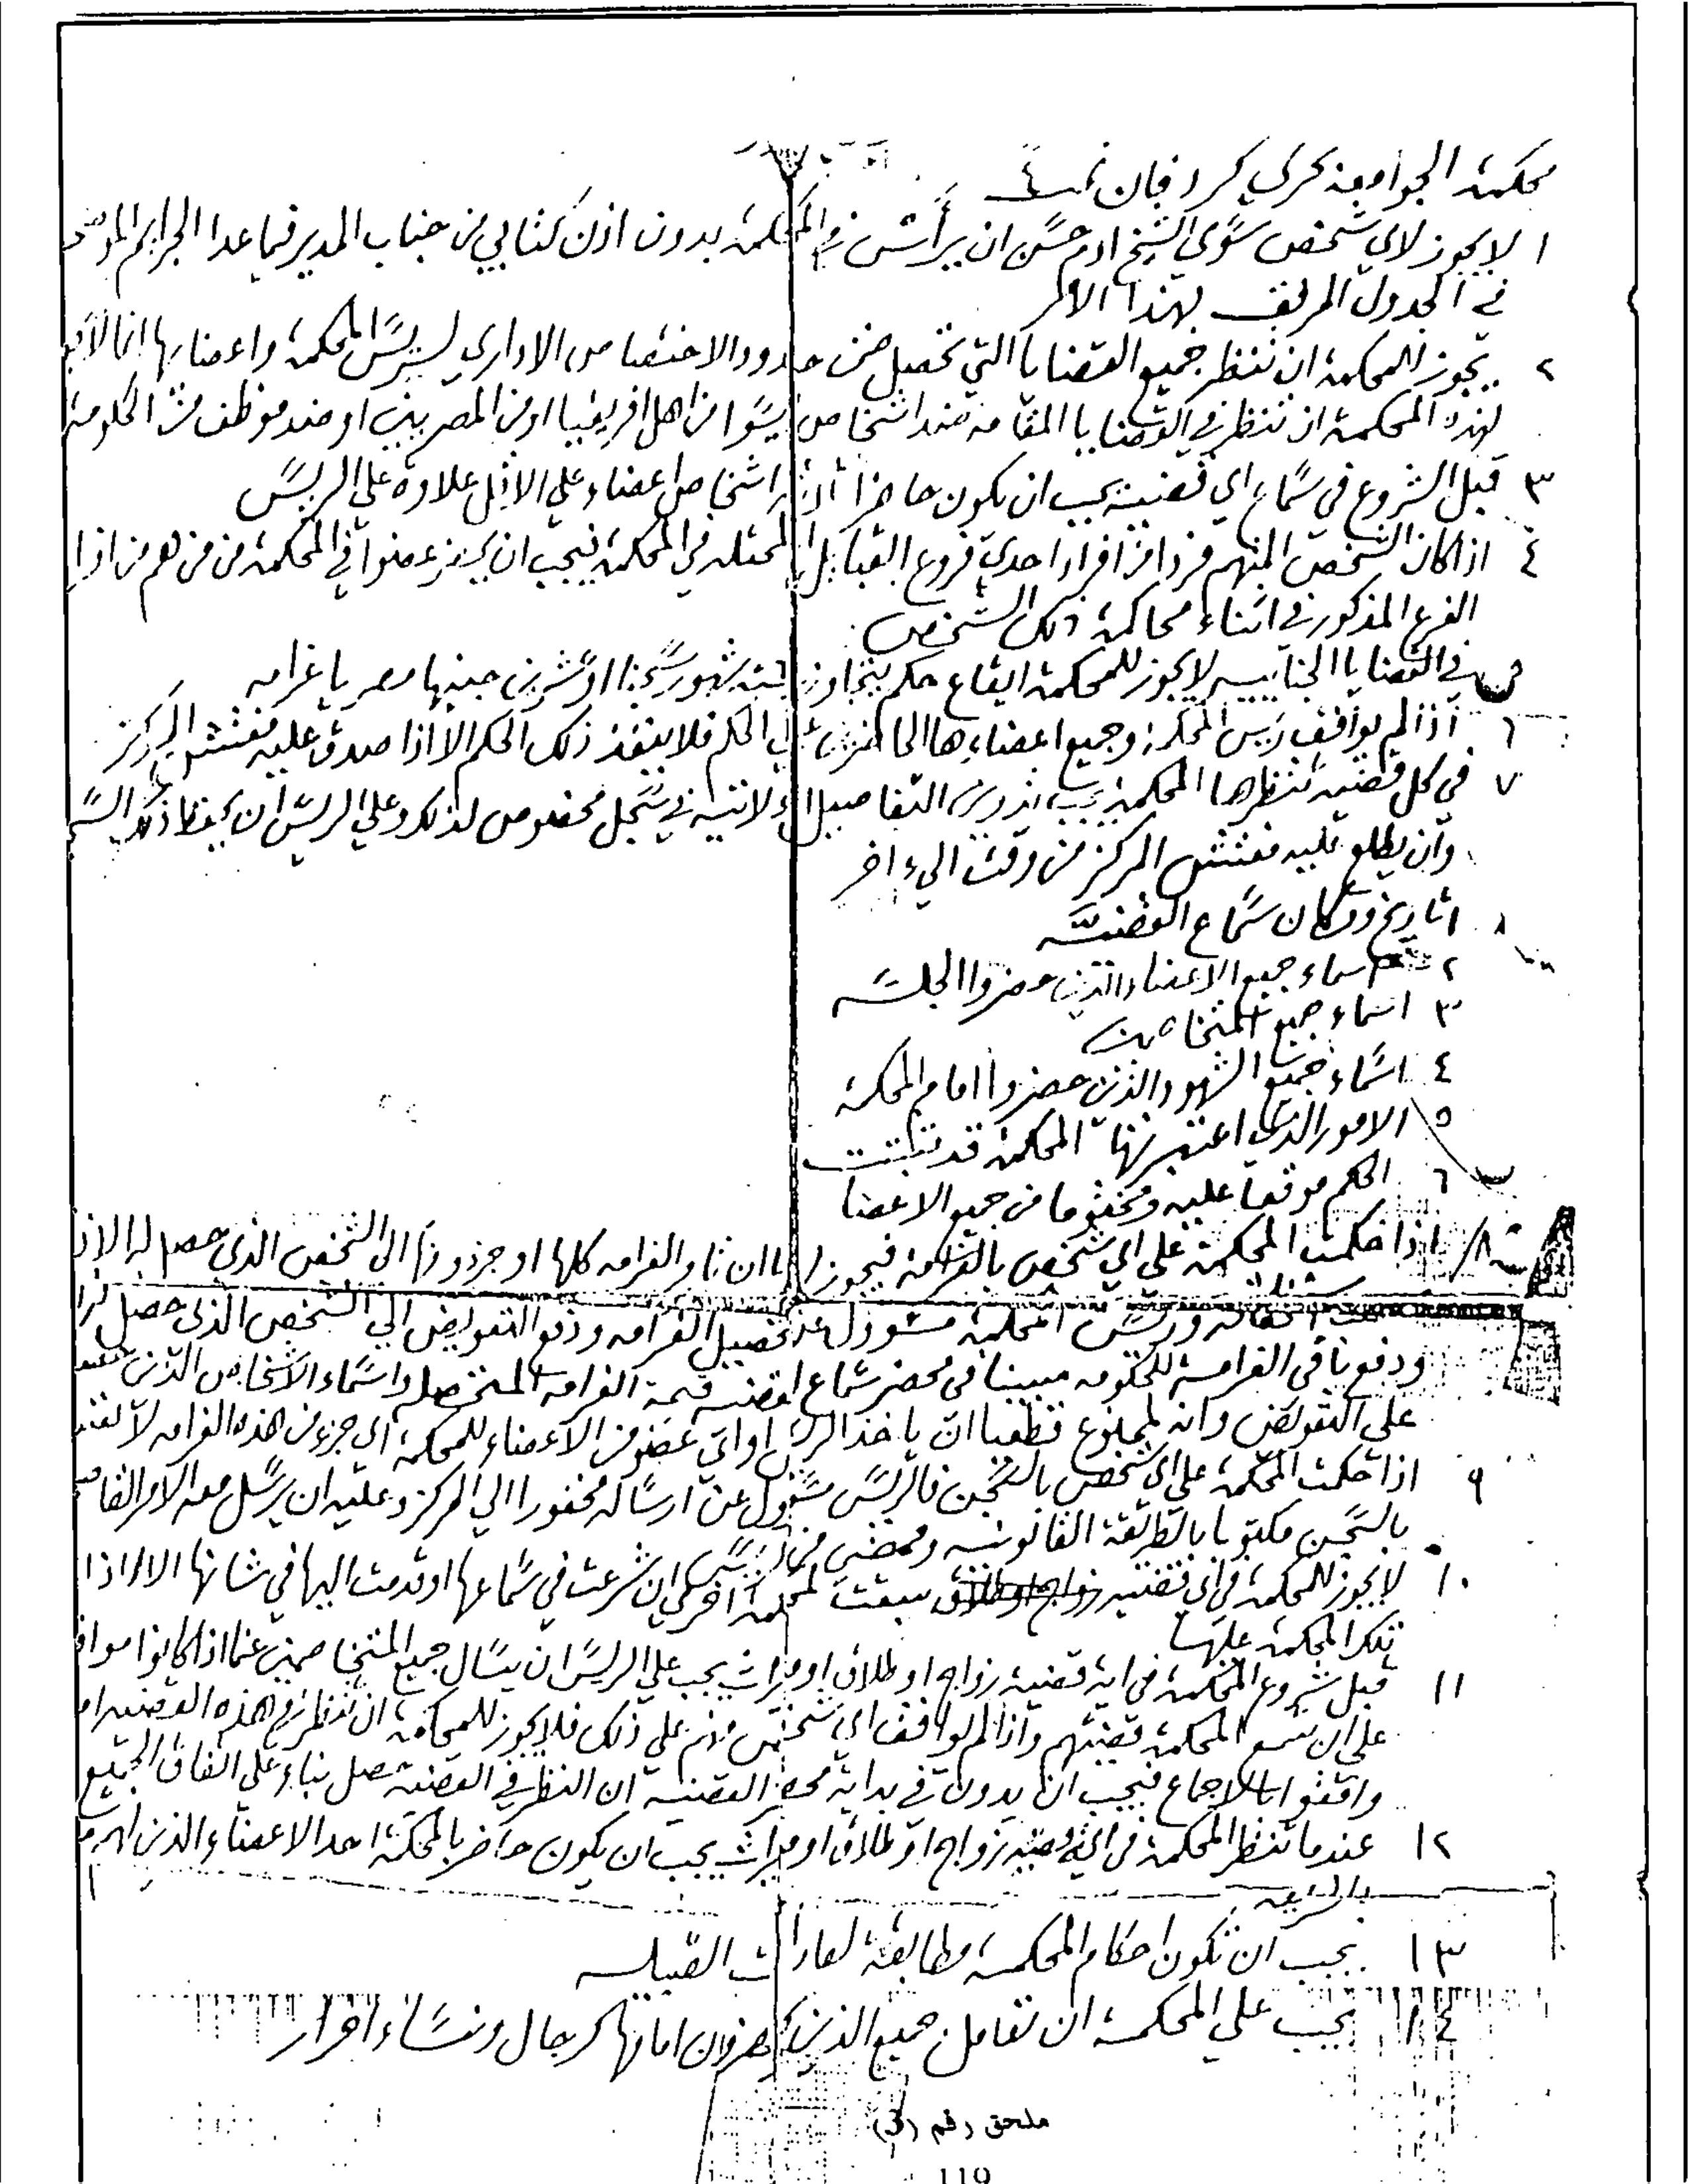 محكمة الجوامعه بحري كردفان
١ لا يجوز لاي شخص سوى الشيخ ادم حسن ان يرأس المحكمة بدون اذن كتابي من جناب المدير فيما عدا الجرايم
في الجدول المرفق بهذا الامر
٢ يجوز للمحكمة ان تنظر جميع القضايا التي تحصل ضمن حدود الاختصاص الاداري لرئيس المحكمة واعضاءها انما
لهذه المحكمة ان تنظر في القضايا المقامه ضد اشخاص ليسوا من اهل افريقيا او من المصريين او ضد موظف من الحكومة
٣ قبل الشروع في سماع اي قضية يجب ان يكون حاضرا اشخاص اعضاء على الاقل علاوة على الريس
٤ اذا كان الشخص المتهم فردا من افراد احدى فروع القبايل الممثله في المحكمة فيجب ان يحضر عضوا في المحكمة من من هم من
الفرع المذكور في اثناء محاكمة ذلك الشخص
في القضايا الجنائيه لا يجوز للمحكمة ايقاع حكم يتجاوز ستة شهور سجنا او عشرين جنيها مصريا غرامه
٦ اذا لم يوافق ريس المحكمة وجميع اعضاءها الحاضرين على الحكم فلا ينفذ ذلك الحكم الا اذا صدق عليه مفتش المركز
٧ في كل قضيه تنظرها المحكمة يجب تدوين التفاصيل الاتيه في سجل مخصوص لذلك وعلى الريس ان يحفظ ذلك
وان يطلع عليه مفتش المركز من وقت الى اخر
١ تاريخ ومكان سماع القضيه
٢ اسماء جميع الاعضاء الذين حضروا الجلسه
٣ اسماء جميع المتخاصمين
٤ اسماء جميع الشهود الذين حضروا امام المحكمة
٥ الامور الذي اعتبرتها المحكمة قد ثبتت
٦ الحكم موقعا عليه ومختوما من جميع الاعضا
٨ اذا حكمت المحكمة على اي شخص بالغرامة فيجوز لها ان الغرامه كلها او جزء منها الى الشخص الذي حصل له
وريس المحكمة مسئول عن تحصيل الغرامه ودفع التعويض الى الشخص الذي حصل
ودفع باقي الغرامة للحكومه مبينا في محضر سماع القضيه قيمة الغرامه المتحصله واسماء الاشخاص الذين
على التعويض وانه لممنوع قطعيا ان ياخذ الريس او اي عضو من الاعضاء للمحكمة اي جزء من هذه الغرامه
٩ اذا حكمت المحكمة على اي شخص بالسجن فالريس مسئول عن ارساله مخفورا الى المركز وعليه ان يرسل معه الامر
بالسجن مكتوبا بالطريقة القانونيه وممضى من الريس
١٠ لا يجوز للمحكمة في اي قضيه سبقت لمحكمة اخرى ان شرعت في سماعها او قدمت اليها في شانها الا اذا
المحكمة عليها
١١ قبل شروع المحكمة في اية قضية زواج او طلاق او ميراث يجب على الريس ان يسال جميع المتخاصمين عما اذا كانوا
على ان تسمع المحكمة قضيتهم واذا لم يوافق اي شخص منهم على ذلك فلا يجوز للمحكمة ان تنظر في هذه القضيه
وافقوا بالاجماع فيجب ان يدون في بداية محضر القضيه ان النظر في القضية حصل بناء على اتفاق الجميع
١٢ عندما تنظر المحكمة في اي قضيه زواج او طلاق او ميراث يجب ان يكون حاضر بالمحكمة احد الاعضاء الذين
بالشريعه
١٣ يجب ان تكون احكام المحكمه مطابقة لعادات القبيله
١٤ يجب على المحكمه ان تعامل جميع الذين يحضرون امامها كرجال ونساء احرار
ملحق رقم (3)
119